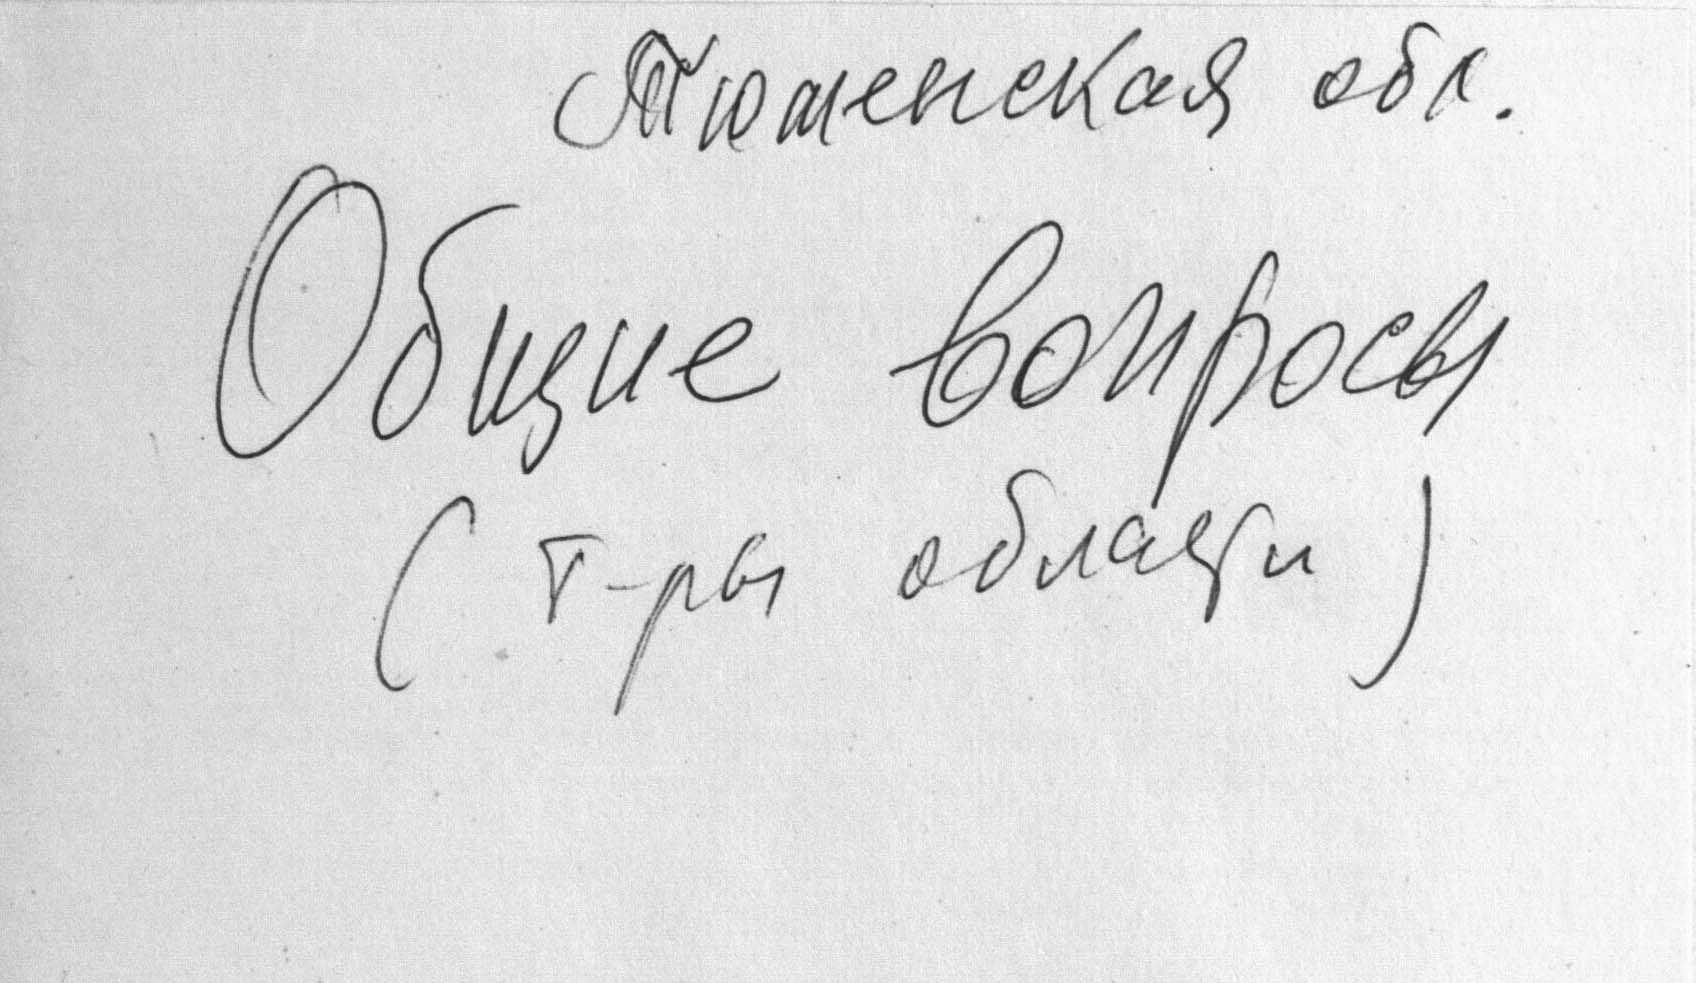 Тюменская обл.
Общие вопросы
(т-ры области)